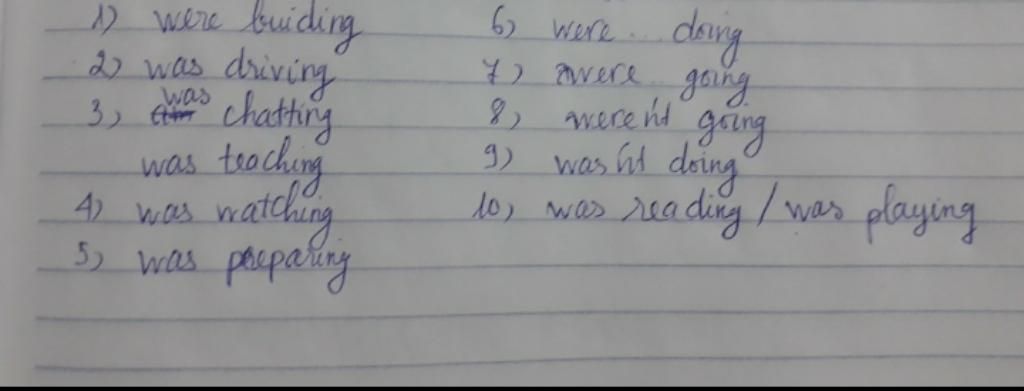 1) were buiding
2) was driving
3) was chatting
was teaching
4) was watching
5) was preparing
6) were... doing
7) were.. going
8) weren't going
9) wasn't doing
10) was reading / was playing